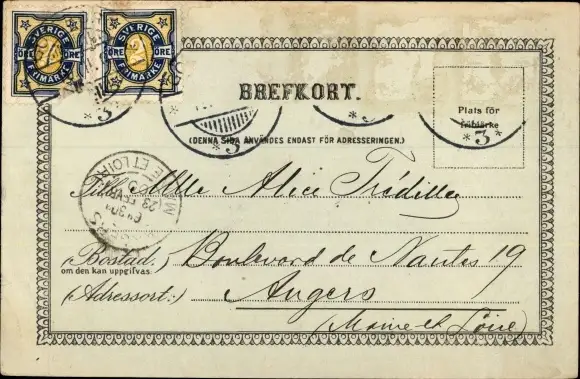 SVERIGE SVERIGE
ÖRE ÖRE ÖRE ÖRE
FRIMÄRKE FRIMÄRKE
BREFKORT.
Plats för
frimärke
3 3 3 3
(DENNA SIDA ANVÄNDES ENDAST FÖR ADRESSERINGEN.)
ET LOIRE
23
Till Mlle Alice
(Bostad:) Boulevard de Nantes 19
om den kan uppgifvas.
(Adressort:) Angers
(Maine et Loire)